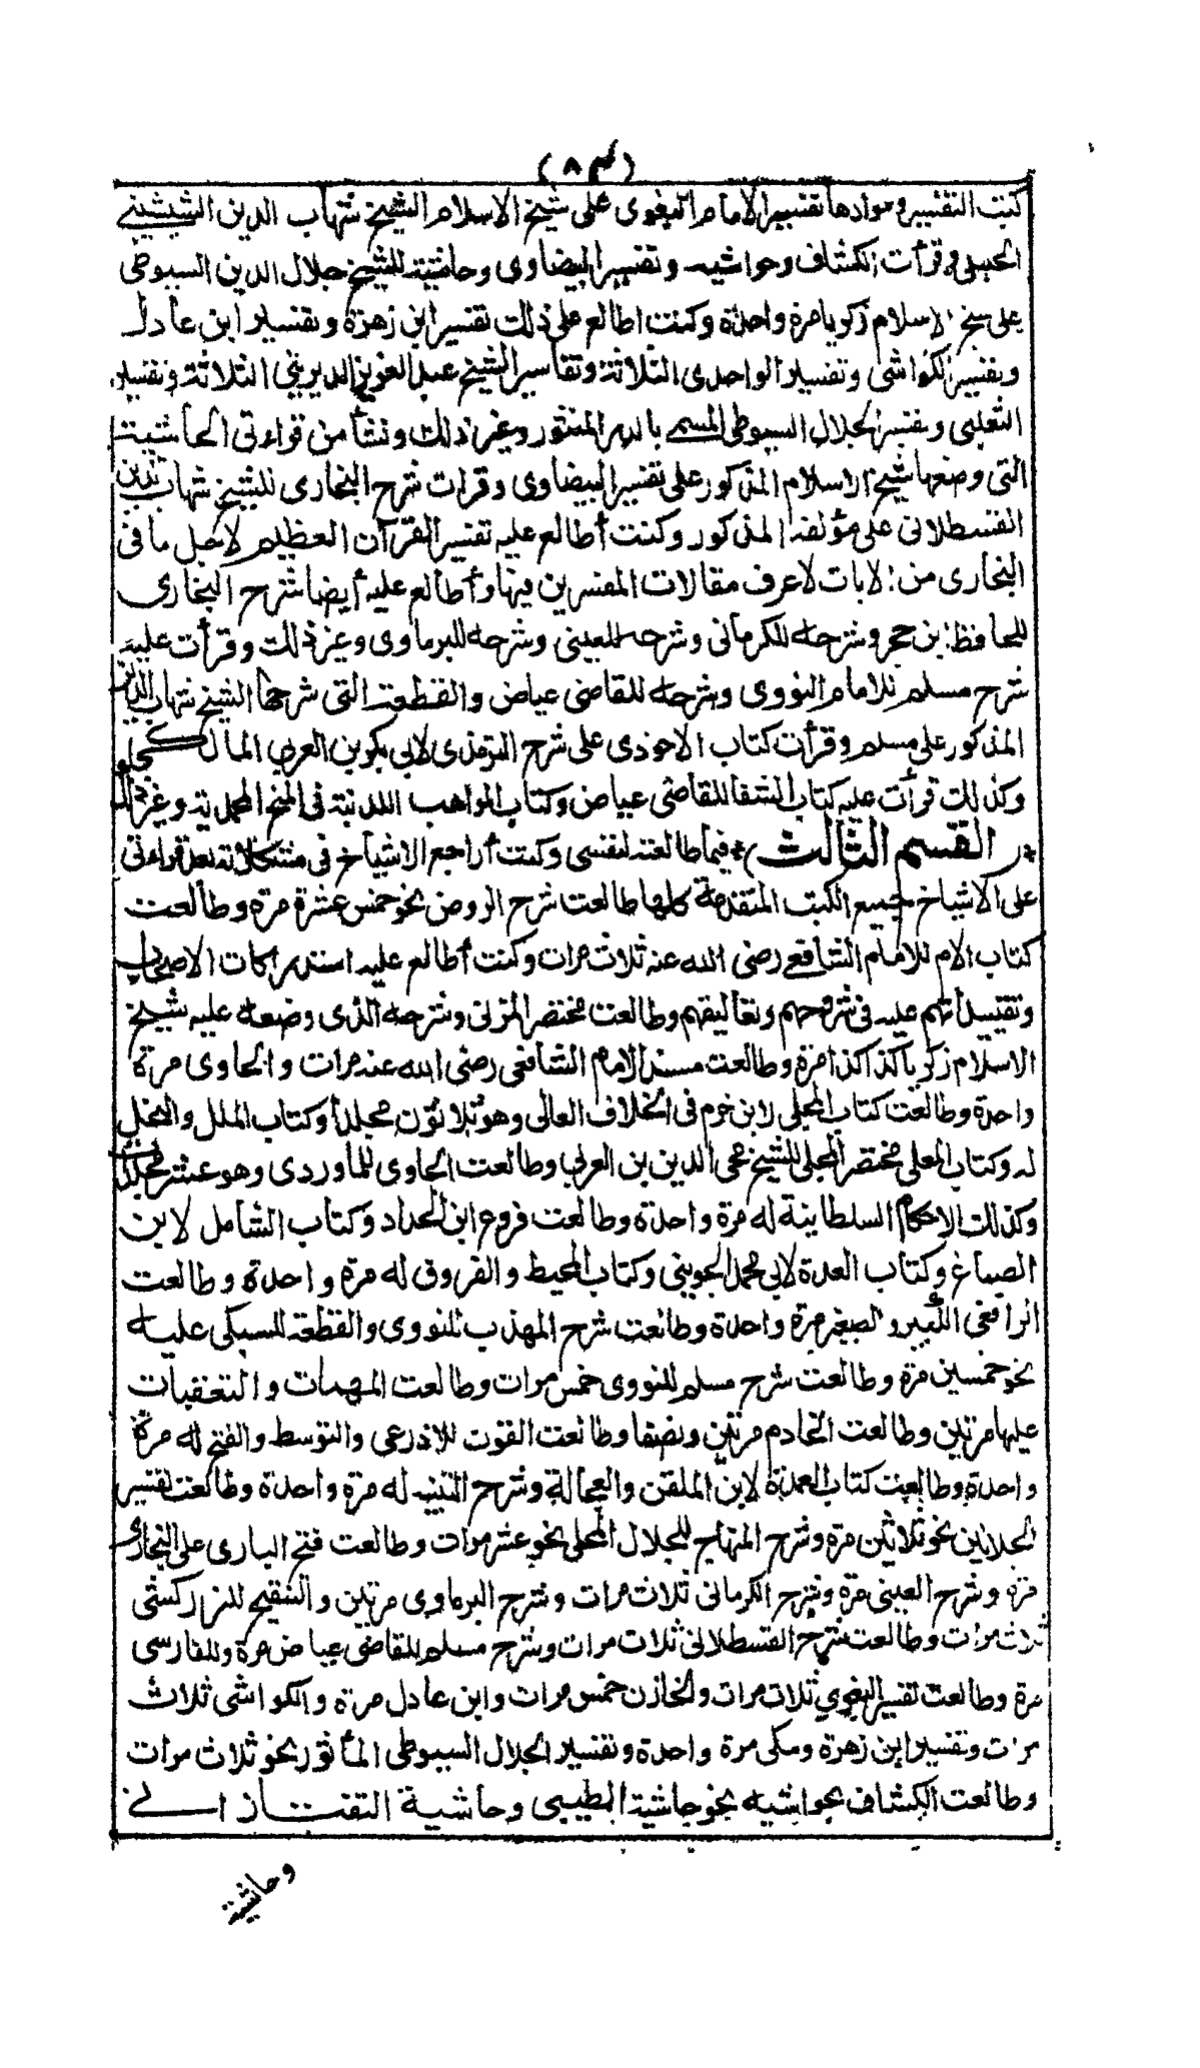 (٨٤)
كتب التفسير وموادها تفسير الامام البغوى على شيخ الاسلام الشيخ شهاب الدين الشيشينى
الحنبلى وقرأت الكشاف وحواشيه وتفسير البيضاوى وحاشيته للشيخ جلال الدين السيوطى
على شيخ الاسلام زكريا مرة واحدة وكنت اطالع على ذلك تفسير ابن زهرة وتفسير ابن عادل
وتفسير الكواشى وتفسير الواحدى الثلاثة وتفاسير الشيخ عبد العزيز الديرينى الثلاثة وتفسير
الثعلبى وتفسير الجلال السيوطى المسمى بالدر المنثور وغير ذلك ونشأ من قراءتى الحاشية
التى وضعها شيخ الاسلام المذكور على تفسير البيضاوى وقرات شرح البخارى للشيخ شهاب الدين
القسطلانى على مؤلفه المذكور وكنت أطالع عليه تفسير القرآن العظيم لاجل ما فى
البخارى من الايات لاعرف مقالات المفسرين فيها وأطالع عليه أيضا شرح البخارى
للحافظ ابن حجر وشرحه للكرمانى وشرحه للعينى وشرحه للبرماوى وغير ذلك وقرأت عليه
شرح مسلم للامام النووى وشرحه للقاضى عياض والقطعة التى شرحها الشيخ شهاب الدين
المذكور على مسلم وقرأت كتاب الاحوذى على شرح الترمذى لابى بكر بن العربى المالكى
وكذلك قرأت عليه كتاب الشفا للقاضى عياض وكتاب المواهب اللدنية فى المنح المحمدية وغير ذلك
*(القسم الثالث)* فيما طالعته لنفسى وكنت أراجع الاشياخ فى مشكلاته بعد قراءتى
على الاشياخ جميع الكتب المتقدمة كلها طالعت شرح الروض نحو خمس عشرة مرة وطالعت
كتاب الام للامام الشافعى رضى الله عنه ثلاث مرات وكنت أطالع عليه استدراكات الاصحاب
وتقييداتهم عليه فى شروحهم وتعاليقهم وطالعت مختصر المزنى وشرحه الذى وضعه عليه شيخ
الاسلام زكريا كذا كذا مرة وطالعت مسند الامام الشافعى رضى الله عنه مرات والحاوى مرة
واحدة وطالعت كتاب المحلى لابن حزم فى الخلاف العالى وهو ثلاثون مجلدا وكتاب الملل والنحل
له وكتاب المعلى مختصر المحلى للشيخ محى الدين بن العربى وطالعت الحاوى للماوردى وهو عشر مجلدات
وكذلك الاحكام السلطانية له مرة واحدة وطالعت فروع ابن الحداد وكتاب الشامل لابن
الصباغ وكتاب العدة لابى محمد الجوينى وكتاب المحيط والفروق له مرة واحدة وطالعت
الرافعى الكبير والصغير مرة واحدة وطالعت شرح المهذب للنووى والقطعة للسبكى عليه
نحو خمسين مرة وطالعت شرح مسلم للنووى خمس مرات وطالعت المهمات والتعقبات
عليها مرتين وطالعت الخادم مرتين ونصفا وطالعت القوت للاذرعى والتوسط والفتح له مرة
واحدة وطالعت كتاب العمدة لابن الملقن والعجالة وشرح التنبيه له مرة واحدة وطالعت تفسير
الجلالين نحو ثلاثين مرة وشرح المنهاج للجلال المحلى نحو عشر مرات وطالعت فتح البارى على البخارى
مرة وشرح العينى مرة وشرح الكرمانى ثلاث مرات وشرح البرماوى مرتين والتنقيح للزركشى
ثلاث مرات وطالعت شرح القسطلانى ثلاث مرات وشرح مسلم للقاضى عياض مرة وللفارسى
مرة وطالعت تفسير البغوي ثلاث مرات والخازن خمس مرات وابن عادل مرة والكواشى ثلاث
مرات وتفسير ابن زهرة ومكى مرة واحدة وتفسير الجلال السيوطى المأثور نحو ثلاث مرات
وطالعت الكشاف بحواشيه نحو حاشية الطيبى وحاشية التفتازانى
وحاشية